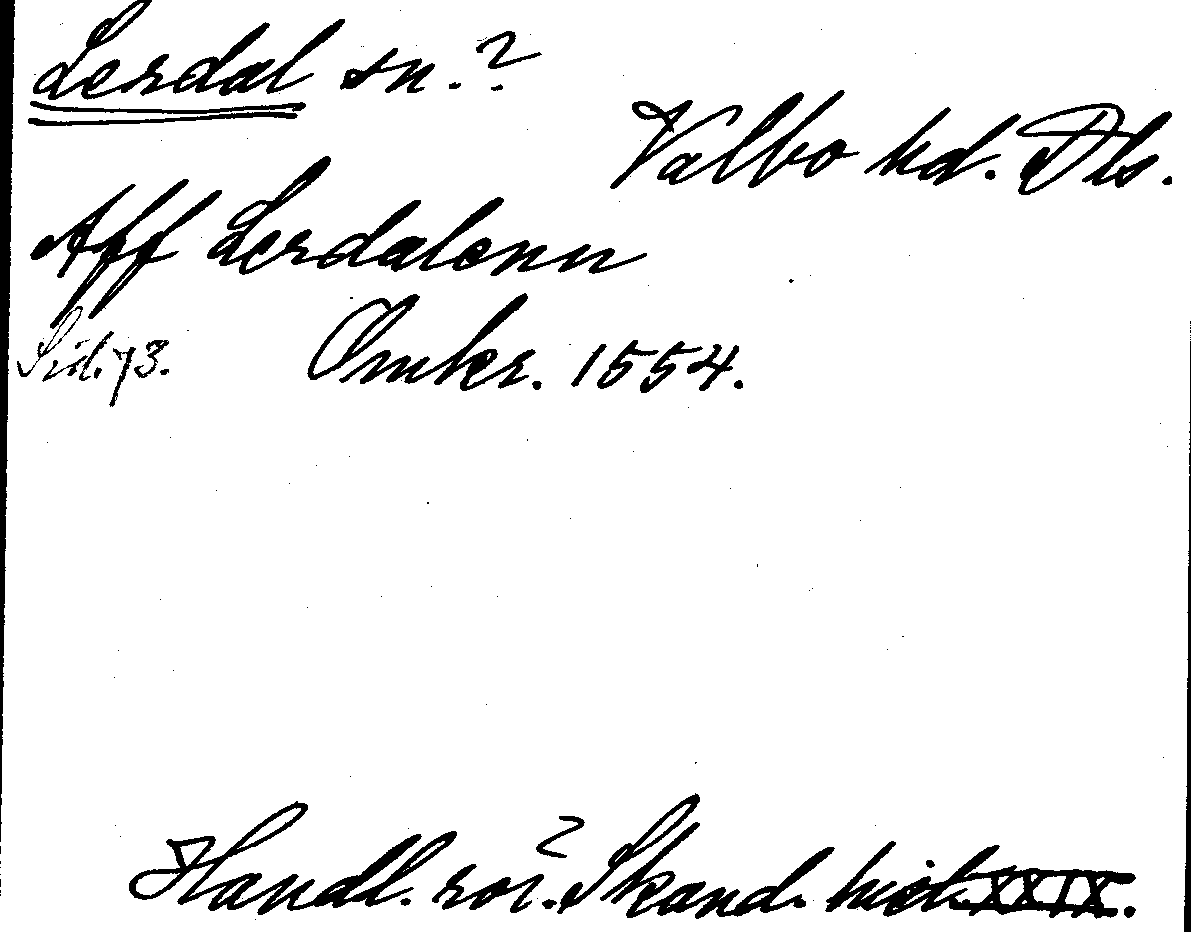 Lerdal sn.?
Valbo hd. Dls.
Aff Lerdalenn
Sid. 73. Omkr. 1554.
Handl. rör. Skand. hist. XXIX.